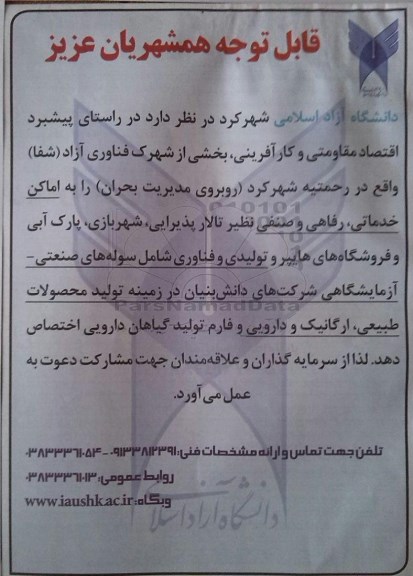 قابل توجه همشهریان عزیز
دانشگاه آزاد اسلامی شهرکرد در نظر دارد در راستای پیشبرد
اقتصاد مقاومتی و کارآفرینی، بخشی از شهرک فناوری آزاد (شفا)
واقع در رحمتیه شهرکرد (روبروی مدیریت بحران) را به اماکن
خدماتی، رفاهی و صنفی نظیر تالار پذیرایی، شهربازی، پارک آبی
و فروشگاه‌های هایپر و تولیدی و فناوری شامل سوله‌های صنعتی-
آزمایشگاهی شرکت‌های دانش‌بنیان در زمینه تولید محصولات
طبیعی، ارگانیک و دارویی و فارم تولید گیاهان دارویی اختصاص
دهد. لذا از سرمایه گذاران و علاقه‌مندان جهت مشارکت دعوت به
عمل می‌آورد.
تلفن جهت تماس و ارائه مشخصات فنی: ۰۹۱۳۳۸۱۲۳۹۱ - ۰۳۸۳۳۳۶۱۰۵۴
روابط عمومی: ۰۳۸۳۳۳۶۱۰۱۳
وبگاه: www.iaushk.ac.ir
ParsNamadData
دانشگاه آزاد اسلامی